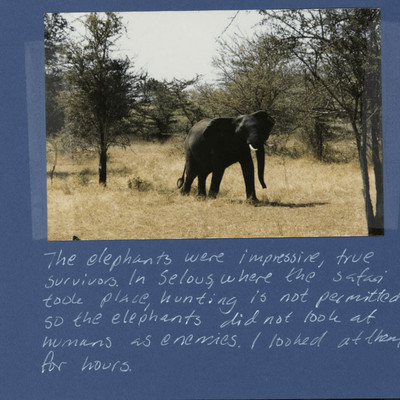 The elephants were impressive, true
survivors. In Selous, where the safari
took place, hunting is not permitted
so the elephants did not look at
humans as enemies. I looked at them
for hours.